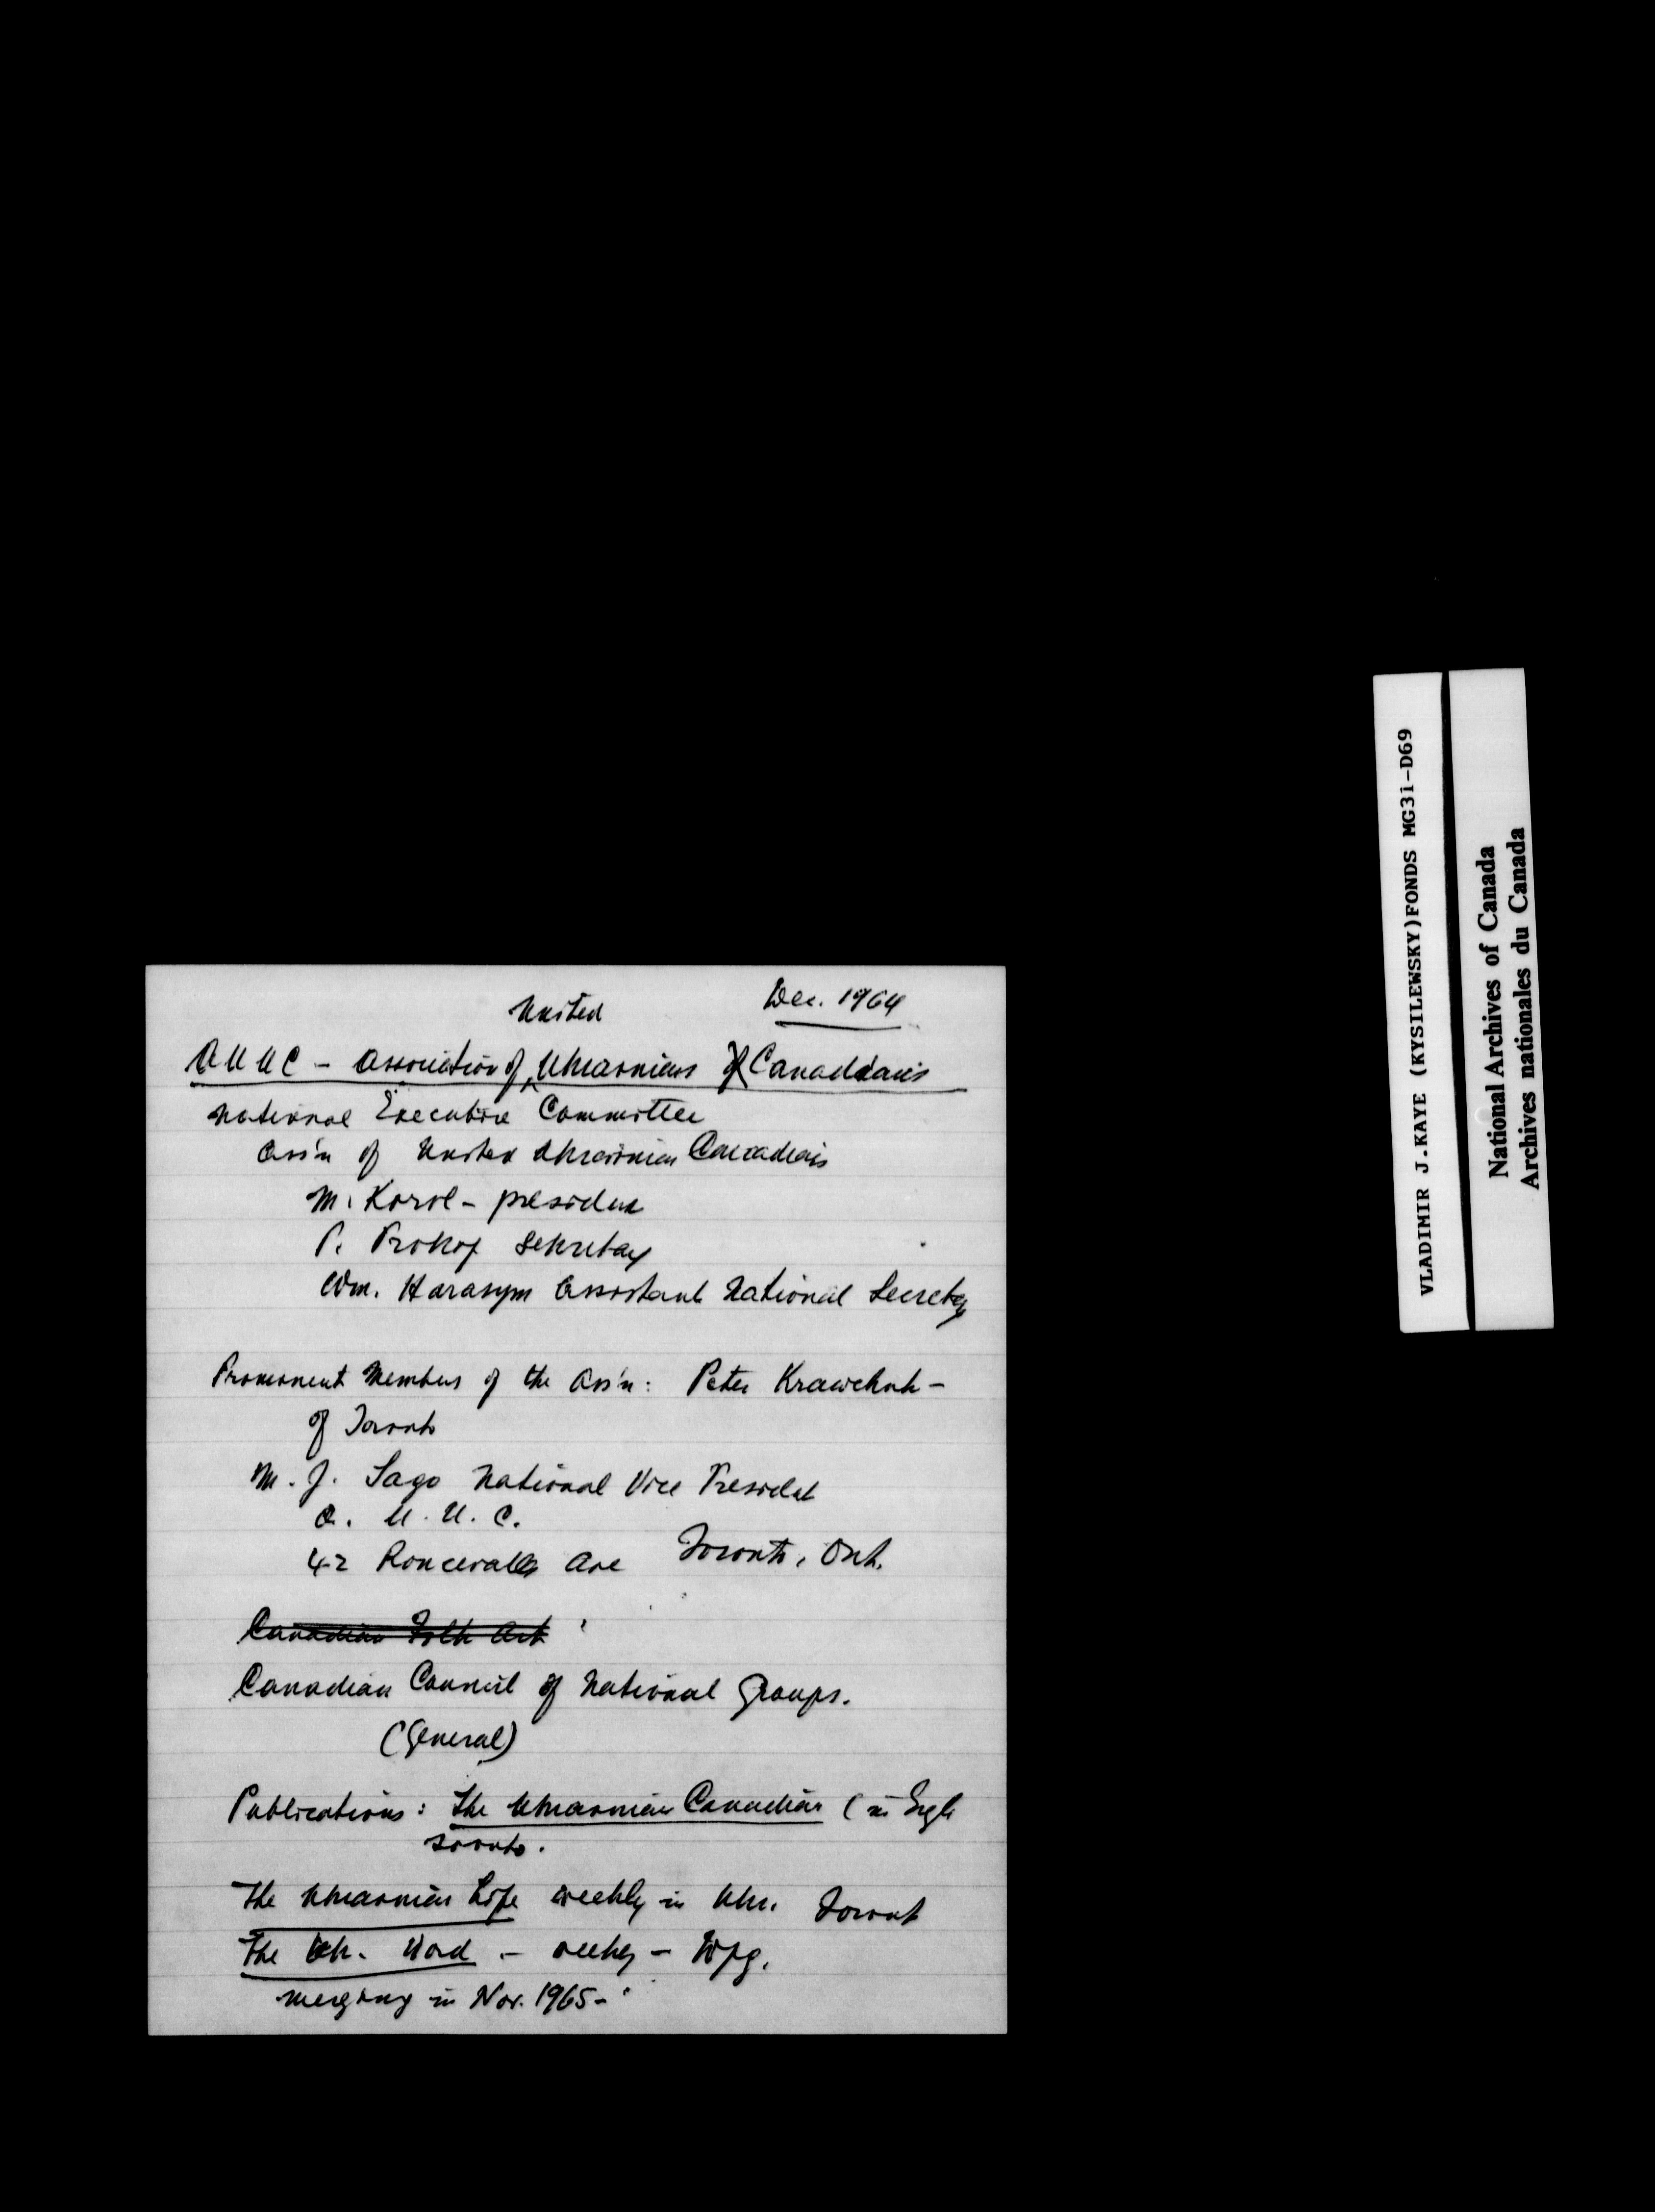 Dec. 1964
United
AUUC - Association of Ukrainians Canadians
National Executive Committee
Ass'n of United Ukrainian Canadians
M. Korol - president
P. Prokop Sekretary
Wm. Harasym Assistant National Secretary
Prominent Members of the Ass'n: Peter Krawchuk -
of Toronto
M. J. Sago National Vice President
A. U. U. C.
42 Roncevalles Ave Toronto, Ont.
Canadian Folk Art
Canadian Council of National Groups.
(General)
Publications: The Ukrainian Canadian (in Engl
Toronto.
The Ukrainian Life weekly in Ukr. Toront
The Ukr. Word - weekly - Wpg.
merging in Nov. 1965 -
VLADIMIR J.KAYE (KYSILEWSKY)FONDS MG31-D69
National Archives of Canada
Archives nationales du Canada